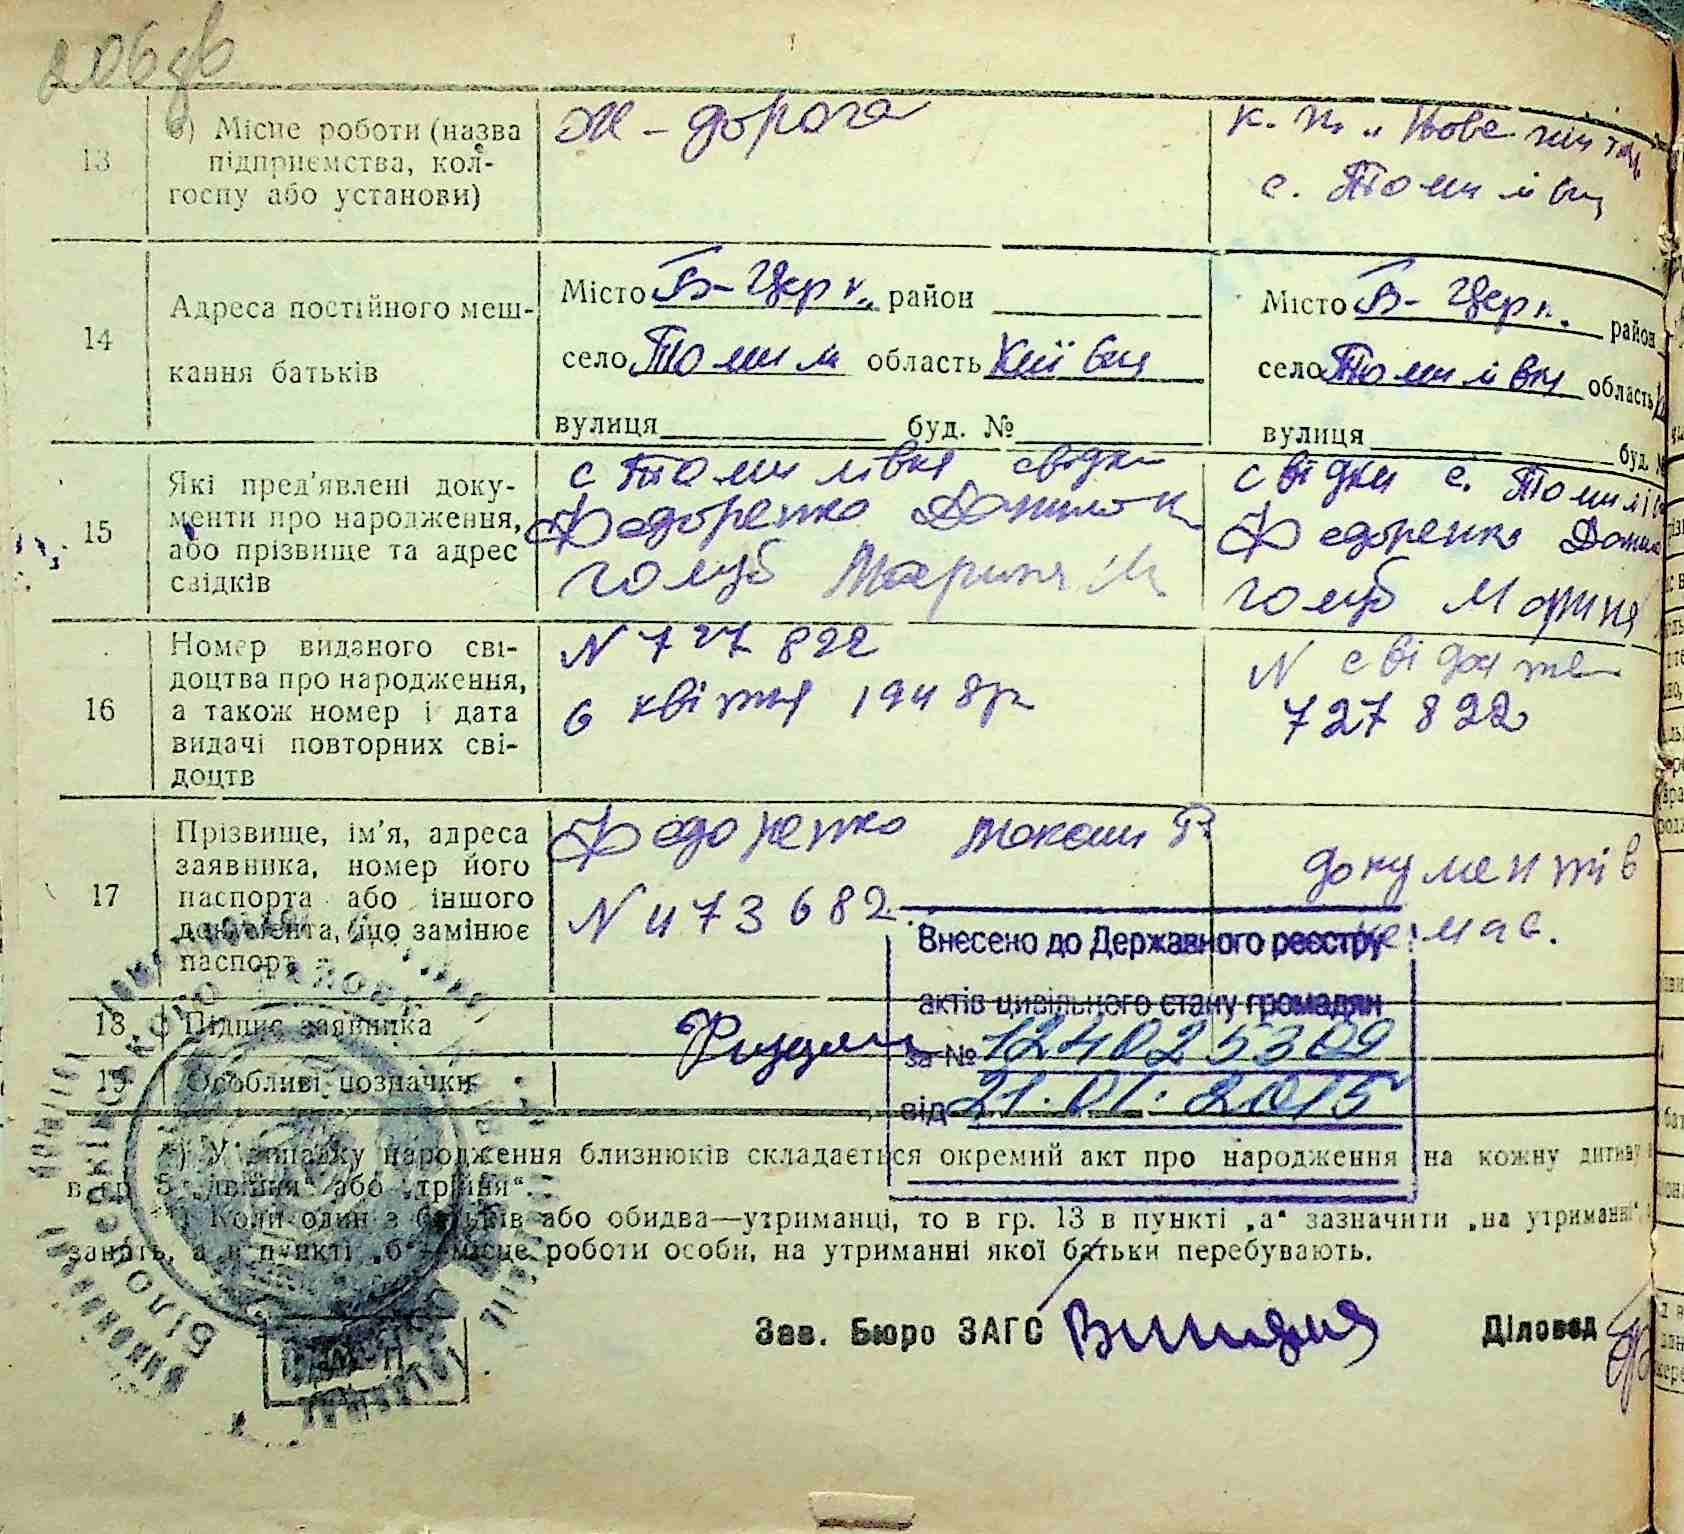 206 зв
13
б) Місце роботи (назва
підприємства, кол-
госпу або установи)
Ж-дорога
к. п. „Нове життя
с. Томилівц
14
Адреса постійного меш-
кання батьків
Місто Б-Церк. район
село Томил область Київськ
вулиця буд. №
Місто Б-Церк. район
село Томилівки область
вулиця буд. №
15
Які пред'явлені доку-
менти про народження,
або прізвище та адрес
свідків
с Томилівка свідки
Федоренко Данилок
Голуб Марина М
свідки с. Томилів
Федоренко Данил
Голуб Марина
16
Номер виданого сві-
доцтва про народження,
а також номер і дата
видачі повторних сві-
доцтв
N 727822
6 квітня 1948р
N свідоцтва
727822
17
Прізвище, ім'я, адреса
заявника, номер його
паспорта або іншого
документа, що замінює
паспорт
Федоренко Максим Р
N 473682
документів
немає.
18
Підпис заявника
19
Особливі позначки
Внесено до Державного реєстру
актів цивільного стану громадян
за № 124025309
від 21.01.2015
*) У випадку народження близнюків складається окремий акт про народження на кожну дитину
в гр. 5 „двійня“ або „трійня“.
**) Коли один з батьків або обидва—утриманці, то в гр. 13 в пункті „а“ зазначити „на утриманні“,
занять, а в пункті „б“—місце роботи особи, на утриманні якої батьки перебувають.
Зав. Бюро ЗАГС
Діловод